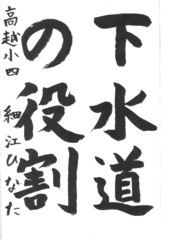 下水道
の役割
高越小四 細江ひなた